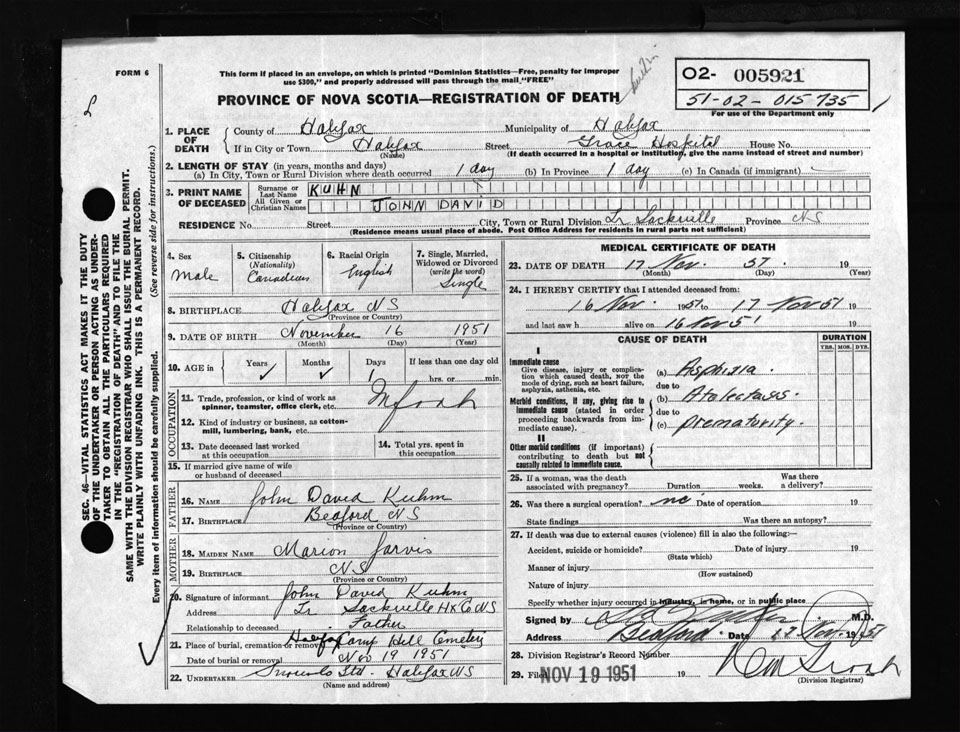 FORM 6
This form if placed in an envelope, on which is printed "Dominion Statistics—Free, penalty for improper
use $300," and properly addressed will pass through the mail "FREE"
O2- 005921
51-02-015735
For use of the Department only
PROVINCE OF NOVA SCOTIA—REGISTRATION OF DEATH
SEC. 46—VITAL STATISTICS ACT MAKES IT THE DUTY
OF THE UNDERTAKER OR PERSON ACTING AS UNDER-
TAKER TO OBTAIN ALL THE PARTICULARS REQUIRED
IN THE "REGISTRATION OF DEATH" AND TO FILE THE
SAME WITH THE DIVISION REGISTRAR WHO SHALL ISSUE THE BURIAL PERMIT.
WRITE PLAINLY WITH UNFADING INK. THIS IS A PERMANENT RECORD.
(See reverse side for instructions.)
Every item of information should be carefully supplied.
1. PLACE OF DEATH County of Halifax Municipality of Halifax
If in City or Town Halifax Street Grace Hospital House No.
(Name) (If death occurred in a hospital or institution, give the name instead of street and number)
2. LENGTH OF STAY (in years, months and days)
(a) In City, Town or Rural Division where death occurred 1 day (b) In Province 1 day (c) In Canada (if immigrant)
3. PRINT NAME OF DECEASED Surname or Last Name KUHN
All Given or Christian Names JOHN DAVID
RESIDENCE No. Street City, Town or Rural Division Lr Sackville Province NS
(Residence means usual place of abode. Post Office Address for residents in rural parts not sufficient)
4. Sex Male
5. Citizenship (Nationality) Canadian
6. Racial Origin English
7. Single, Married, Widowed or Divorced (write the word) Single
8. BIRTHPLACE Halifax NS
(Province or Country)
9. DATE OF BIRTH November 16 1951
(Month) (Day) (Year)
10. AGE in Years ✓ Months ✓ Days 1 If less than one day old hrs. or min.
OCCUPATION
11. Trade, profession, or kind of work as
spinner, teamster, office clerk, etc. Infant
12. Kind of industry or business, as cotton-
mill, lumbering, bank, etc.
13. Date deceased last worked
at this occupation
14. Total yrs. spent in
this occupation
15. If married give name of wife
or husband of deceased
FATHER
16. NAME John David Kuhn
17. BIRTHPLACE Bedford NS
(Province or Country)
MOTHER
18. MAIDEN NAME Marion Jarvis
19. BIRTHPLACE NS
(Province or Country)
20. Signature of informant John David Kuhn
Address Lr Sackville Hx Co NS
Relationship to deceased Father
21. Place of burial, cremation or removal Halifax Camp Hill Cemetery
Date of burial or removal Nov 19 1951
22. UNDERTAKER Snows Ltd. Halifax NS
(Name and address)
MEDICAL CERTIFICATE OF DEATH
23. DATE OF DEATH 17 Nov. 51. 19
(Month) (Day) (Year)
24. I HEREBY CERTIFY that I attended deceased from:
16 Nov. 1951 to 17 Nov 51 19
and last saw h alive on 16 Nov 51 19
CAUSE OF DEATH
DURATION
YRS. MOS. DYS.
I
Immediate cause
Give disease, injury or complica-
tion which caused death, NOT the
mode of dying, such as heart failure,
asphyxia, asthenia, etc.
(a) Asphixia.
due to
Morbid conditions, if any, giving rise to
immediate cause (stated in order
proceeding backwards from im-
mediate cause).
(b) Atelectasis.
due to
(c) Prematurity.
II
Other morbid conditions (if important)
contributing to death but not
causally related to immediate cause.
25. If a woman, was the death
associated with pregnancy? Duration weeks. Was there
a delivery?
26. Was there a surgical operation? no Date of operation 19
State findings Was there an autopsy?
27. If death was due to external causes (violence) fill in also the following:—
Accident, suicide or homicide? Date of injury 19
(State which)
Manner of injury
(How sustained)
Nature of injury
Specify whether injury occurred in industry, in home, or in public place
Signed by M.D.
Address Bedford. Date 17 Nov 1951
28. Division Registrar's Record Number
29. Filed NOV 19 1951 19
(Division Registrar)